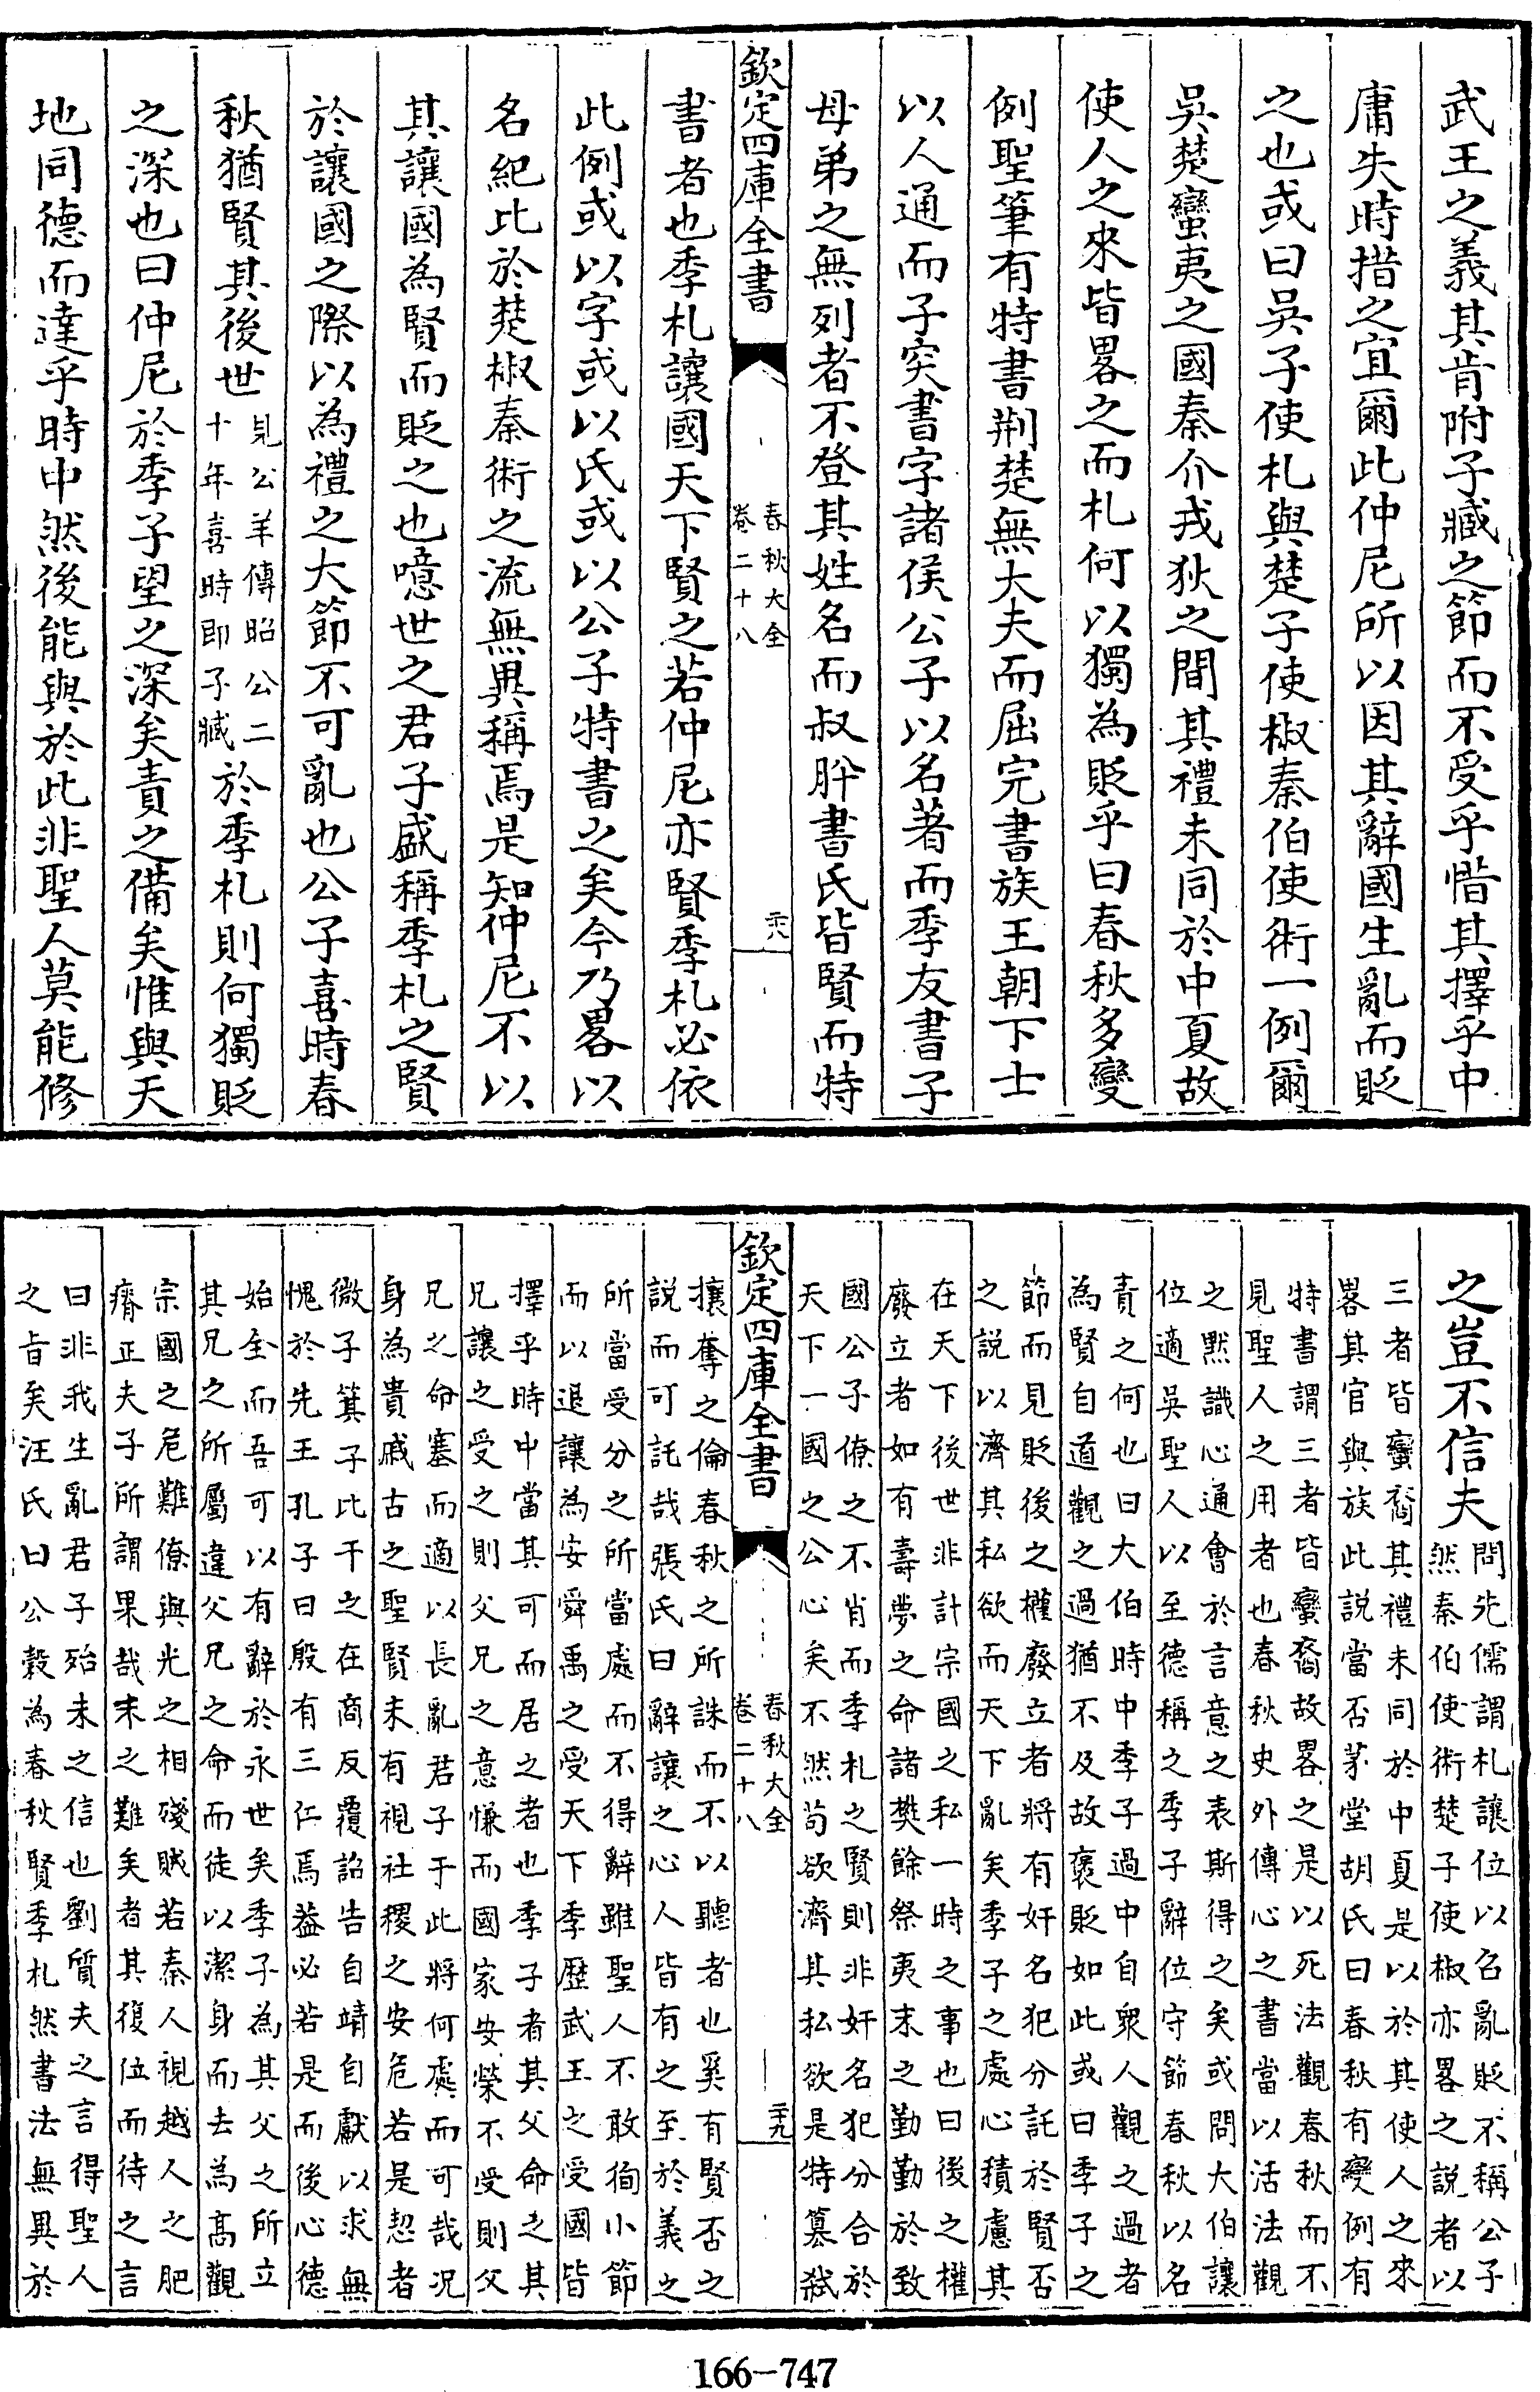 武王之義其肯附子臧之節而不受乎惜其擇乎中
庸失時措之宜爾此仲尼所以因其辭國生亂而貶
之也或曰吳子使札與楚子使椒秦伯使術一例爾
吳楚蠻夷之國秦介戎狄之間其禮未同於中夏故
使人之來皆畧之而札何以獨為貶乎曰春秋多變
例聖筆有特書荆楚無大夫而屈完書族王朝下士
以人通而子突書字諸侯公子以名著而季友書子
母弟之無列者不登其姓名而叔肸書氏皆賢而特
欽定四庫全書
春秋大全
卷二十八
二十八
書者也季札讓國天下賢之若仲尼亦賢季札必依
此例或以字或以氏或以公子特書之矣今乃畧以
名紀比於楚椒秦術之流無異稱焉是知仲尼不以
其讓國為賢而貶之也噫世之君子盛稱季札之賢
於讓國之際以為禮之大節不可亂也公子喜時春
秋猶賢其後世
見公羊傳昭公二
十年喜時即子臧
於季札則何獨貶
之深也曰仲尼於季子望之深矣責之備矣惟與天
地同德而達乎時中然後能與於此非聖人莫能修
之豈不信夫
問先儒謂札讓位以召亂貶不稱公子
然秦伯使術楚子使椒亦畧之說者以
三者皆蠻裔其禮未同於中夏是以於其使人之來
畧其官與族此說當否茅堂胡氏曰春秋有變例有
特書謂三者皆蠻裔故畧之是以死法觀春秋而不
見聖人之用者也春秋史外傳心之書當以活法觀
之黙識心通會於言意之表斯得之矣或問大伯讓
位適吳聖人以至德稱之季子辭位守節春秋以名
責之何也曰大伯時中季子過中自衆人觀之過者
為賢自道觀之過猶不及故褒貶如此或曰季子之
節而見貶後之權廢立者將有奸名犯分託於賢否
之說以濟其私欲而天下亂矣季子之處心積慮其
在天下後世非計宗國之私一時之事也曰後之權
廢立者如有壽夢之命諸樊餘祭夷末之勤勤於致
國公子僚之不肖而季札之賢則非奸名犯分合於
天下一國之公心矣不然苟欲濟其私欲是特簒弑
欽定四庫全書
春秋大全
卷二十八
二十九
攘奪之倫春秋之所誅而不以聽者也奚有賢否之
說而可託哉張氏曰辭讓之心人皆有之至於義之
所當受分之所當處而不得辭雖聖人不敢徇小節
而以退讓為安舜禹之受天下季歷武王之受國皆
擇乎時中當其可而居之者也季子者其父命之其
兄讓之受之則父兄之意慊而國家安榮不受則父
兄之命塞而適以長亂君子于此將何處而可哉况
身為貴戚古之聖賢未有視社稷之安危若是恝者
微子箕子比干之在商反覆詔告自靖自獻以求無
愧於先王孔子曰殷有三仁焉益必若是而後心德
始全而吾可以有辭於永世矣季子為其父之所立
其兄之所屬違父兄之命而徒以潔身而去為高觀
宗國之危難僚與光之相殘賊若秦人視越人之肥
瘠正夫子所謂果哉末之難矣者其復位而待之言
曰非我生亂君子殆未之信也劉質夫之言得聖人
之旨矣汪氏曰公穀為春秋賢季札然書法無異於
166-747